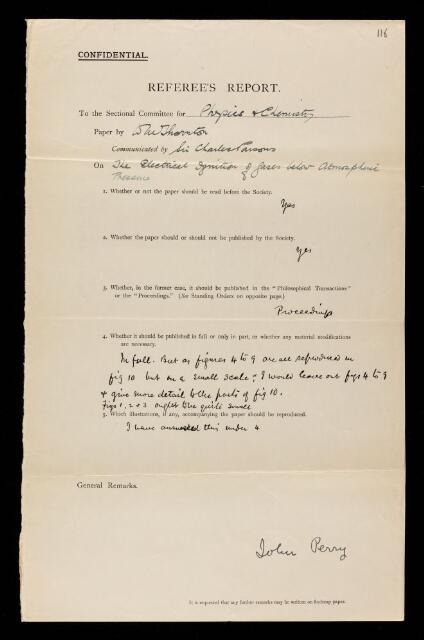 116
CONFIDENTIAL.
REFEREE'S REPORT.
To the Sectional Committee for Physics & Chemistry
Paper by W M Thornton
Communicated by Sir Charles Parsons
On The Electrical Ignition of gases below Atmospheric
Pressure
1. Whether or not the paper should be read before the Society.
Yes
2. Whether the paper should or should not be published by the Society.
Yes
3. Whether, in the former case, it should be published in the "Philosophical Transactions"
or the "Proceedings." (See Standing Orders on opposite page.)
Proceedings
4. Whether it should be published in full or only in part, or whether any material modifications
are necessary.
In full. But as figures 4 to 9 are all reproduced in
fig 10 but on a small scale, I would leave out figs 4 to 9
& give more detail to the parts of fig 10.
Figs 1, 2 & 3 ought to be quite small
5. Which illustrations, if any, accompanying the paper should be reproduced.
I have answered this under 4
General Remarks.
John Perry
It is requested that any further remarks may be written on foolscap paper.